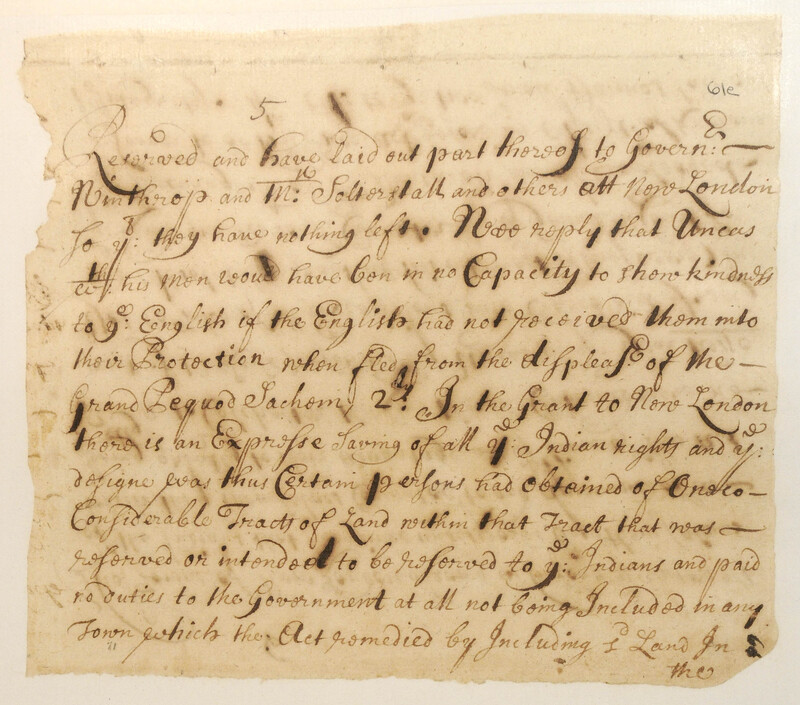 61e
5
Reserved and have laid out part thereof to Govern:r
Winthrop and Mr: Solterstall and others att New London
so yt: they have nothing left. Wee reply that Uncas
wth: his men woud have ben in no Capacity to shew kindness
to ye: English if the English had not received them into
their Protection when fled from the displeasre of the
Grand Pequod Sachem, 2dly In the Grant to New London
there is an Expresse Saving of all ye: Indian rights and ye:
designe was thus Certain persons had obtained of Oneco
Considerable Tracts of Land within that Tract that was
reserved or intended to be reserved to ye: Indians and paid
no duties to the Government at all not being Included in any
Town which the Act remedied by Including sd Land In
the